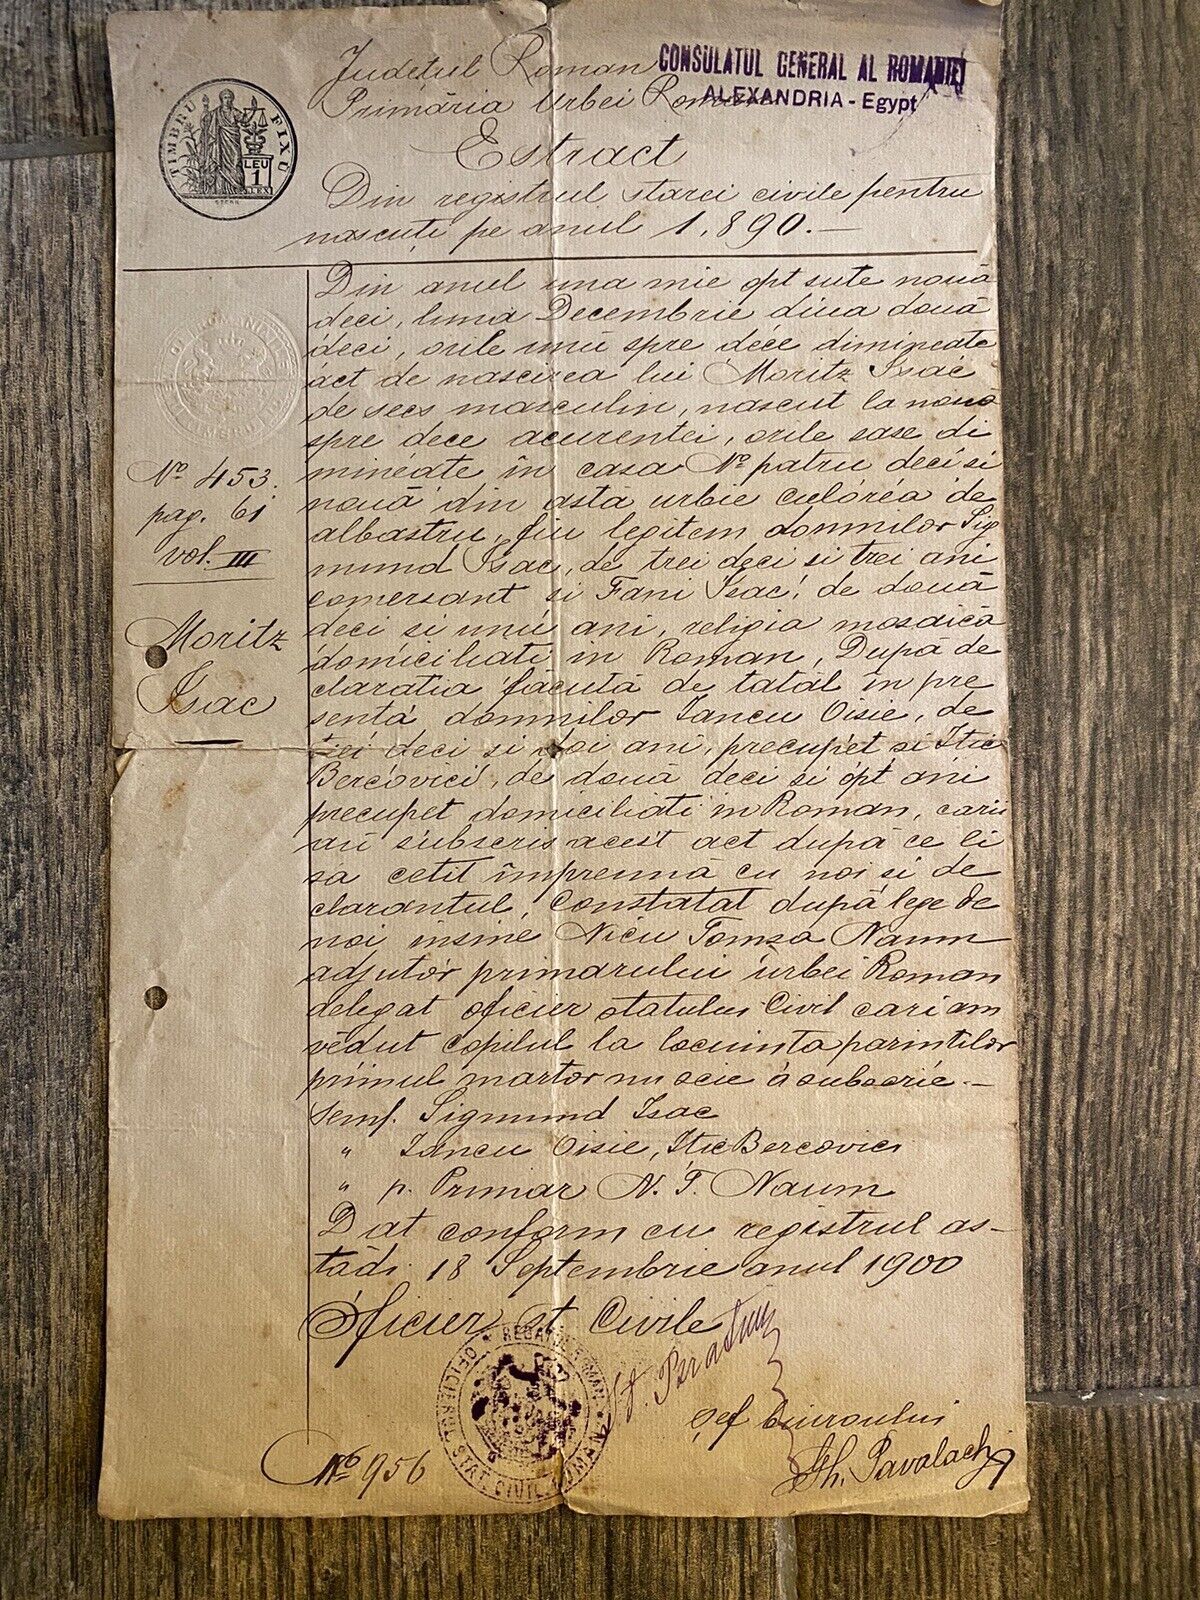 Judeţul Roman
CONSULATUL GENERAL AL ROMANIEI
ALEXANDRIA - Egypt
Primăria Urbei Roman
TIMBRU FIXU
LEU
1
Estract
Din registrul starei civile pentru
născuţi pe anul 1.890.—
Din anul una mie opt sute nouă
deci, luna Decembrie diua două
deci, orile unŭ spre dece dimineate
act de nascerea lui Moritz Isac
de secs masculin, nascut la nouă
spre dece acurentei, orile sase di
mineate în casa No patru deci si
nouă din astă urbie culórea de
albastru, fiu legitem domnilor Sig
mund Isac, de trei deci si trei ani
comersant si Fani Isac, de două
deci si unŭ ani, religia mosaică
domiciliati in Roman, După de
claratia făcută de tatăl în pre
sentă domnilor Iancu Oisie, de
trei deci si doi ani, precupet si Itic
Bercovici, de două deci si opt ani
precupet domiciliati in Roman, carii
aŭ subscris acest act după ce li
sa cetit împreună cu noi si de
clarantul, Constatat după lege de
noi insine Nicu Tomza Naum
adjutor primarului urbei Roman
delegat oficier statului Civil cari am
vĕdut copilul la locuinta parintilor
primul martor nu scie a subscrie.—
Semf. Sigmund Isac
" Iancu Oisie, Itic Bercovici
" p. Primar N. T. Naum
Dat conform cu registrul as-
tădi 18 Septembrie anul 1900
Oficier st Civile
No 453.
pag. 61
vol. III
Moritz
Isac
şef biuroului
Gh. Pavalachi
No 956